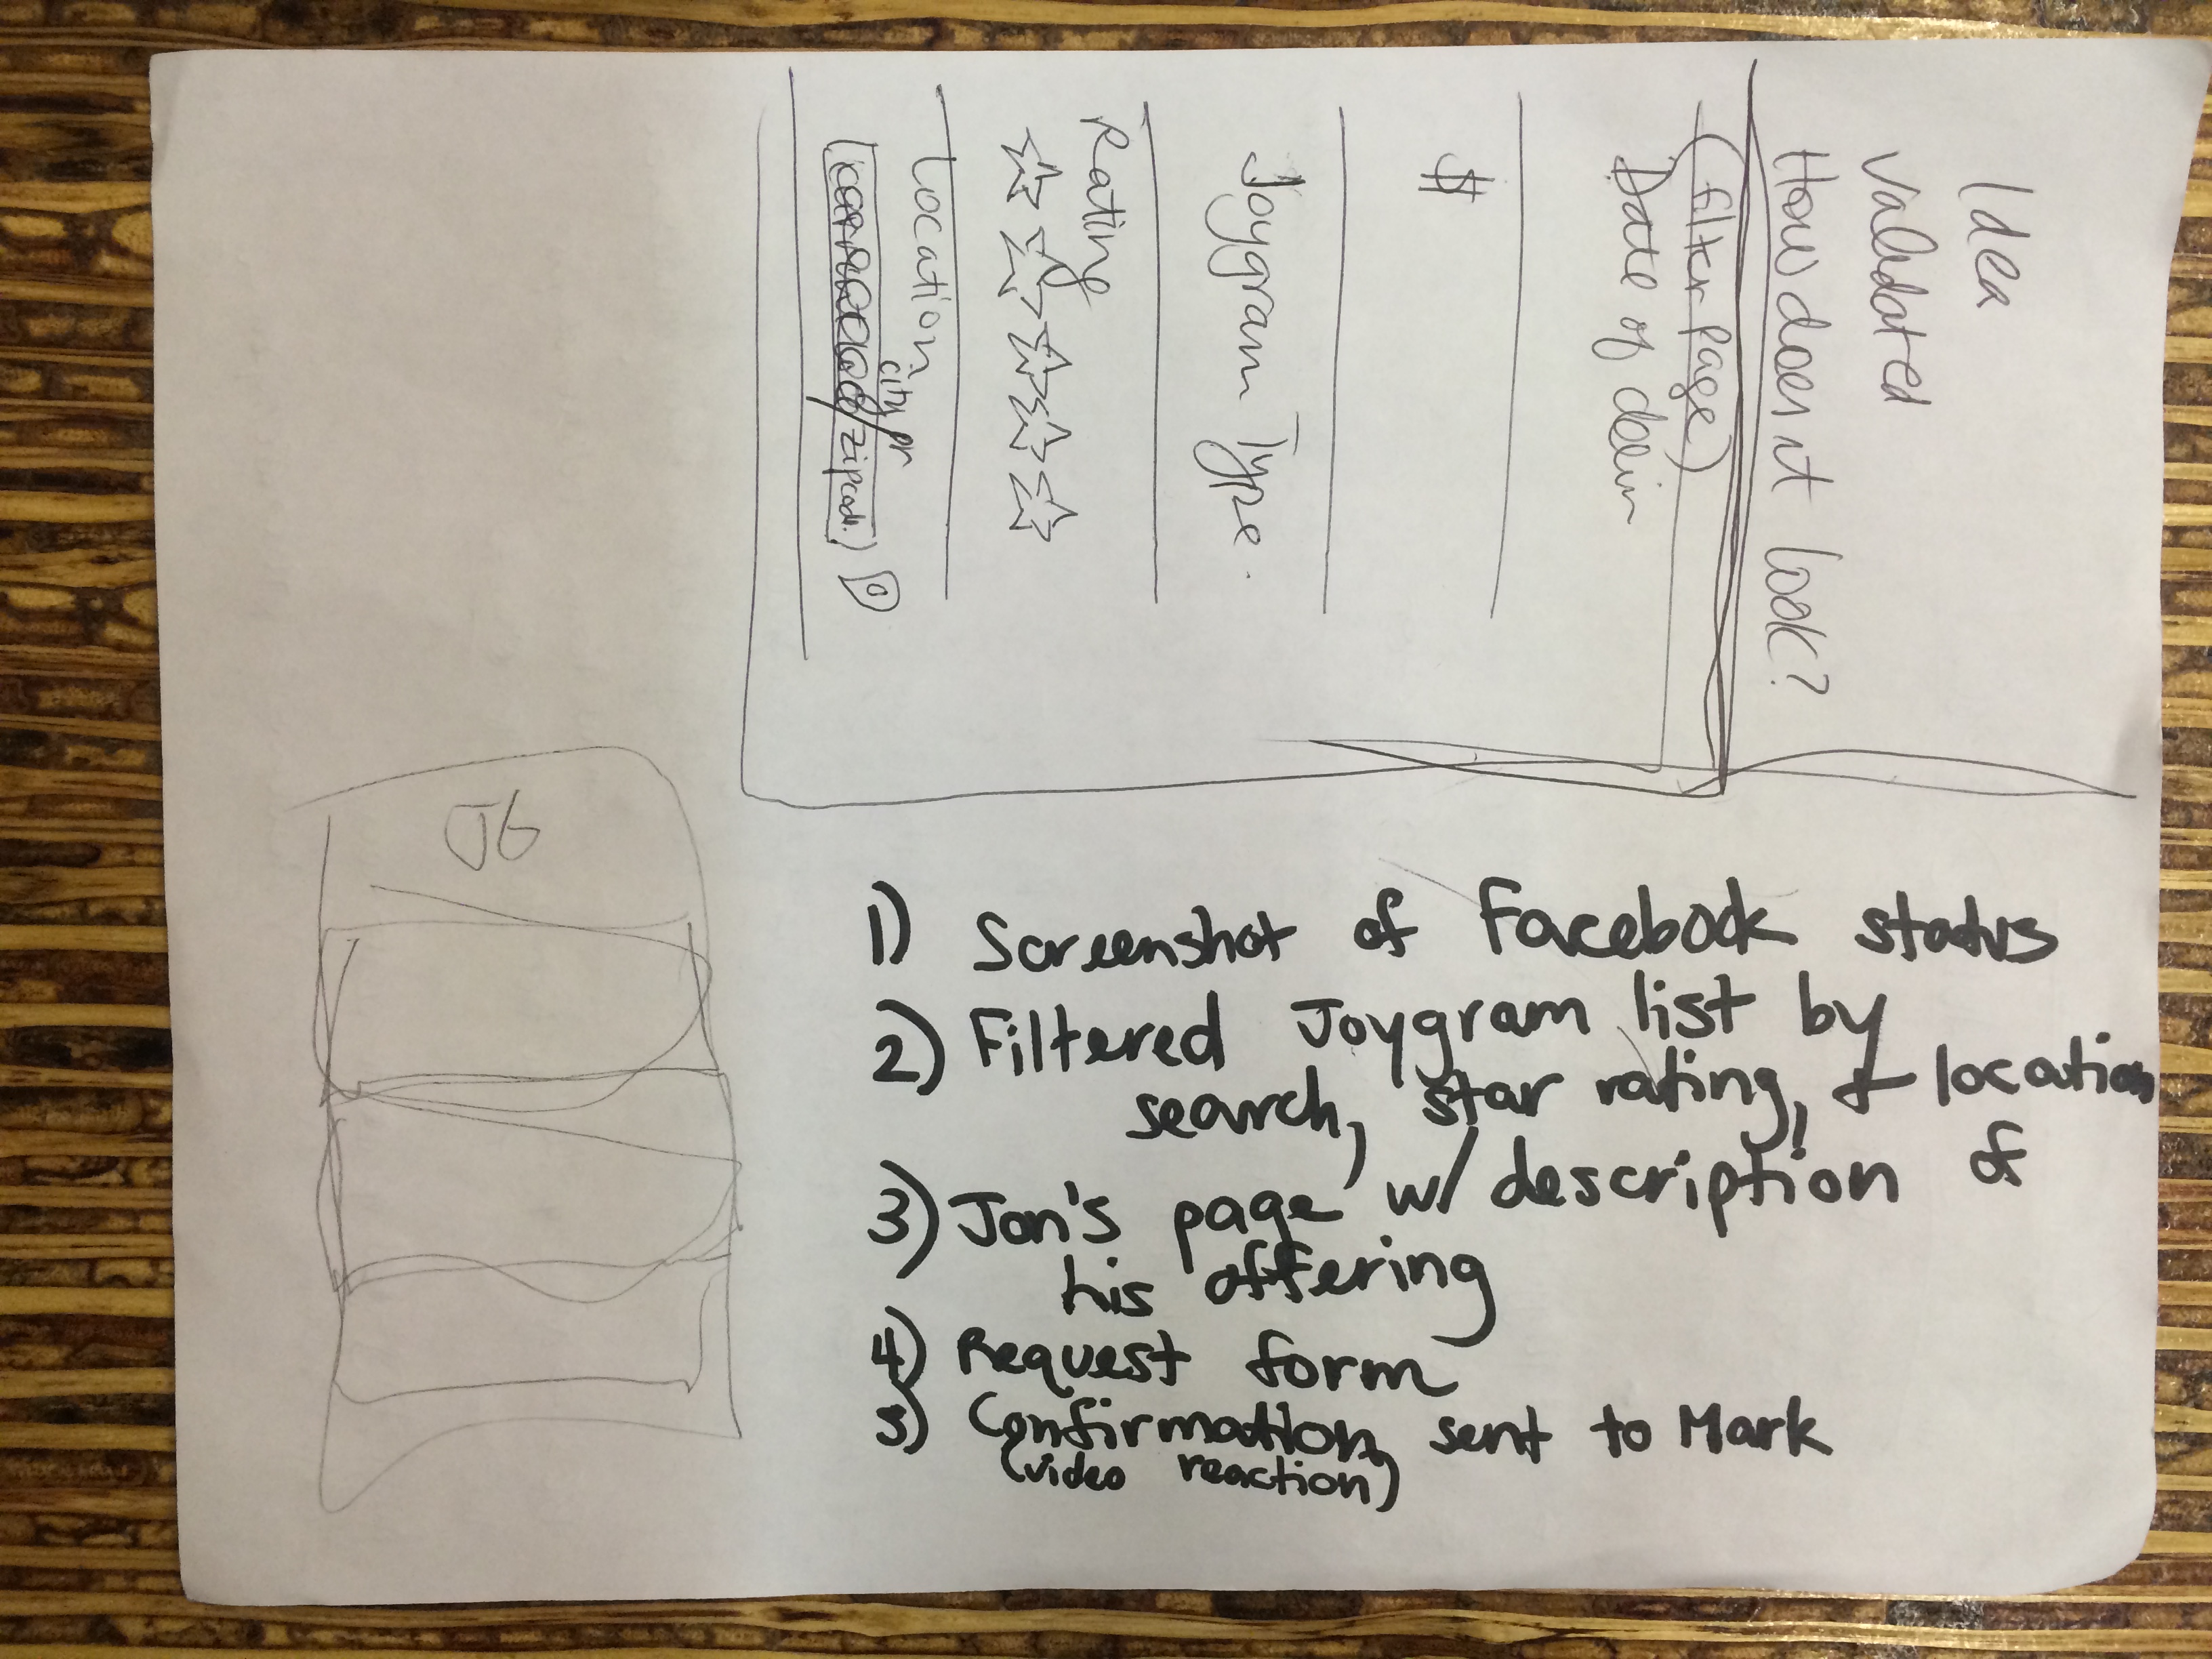 Idea
Validated
How does it look?
(filter page)
Date of
$
Joygram Type.
Rating
Location
city or
zipcode.
1) Screenshot of Facebook status
2) Filtered Joygram list by location
search, star rating,
3) Jon's page w/ description &
his offering
4) Request form
5) Confirmation sent to Mark
(video reaction)
JG